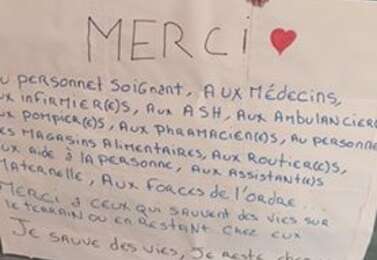 MERCI
u personnel Soignant, AUX Médecins,
ux infirmier(e)s, Aux ASH, Aux Ambulancier(
ux pompier(e)s, Aux pharmacien(e)s, Au personne
es Magasins Alimentaires, Aux Routier(e)s,
ux Aide à la personne, Aux Assistant(e)s
Maternelle, Aux Forces de l'ordre...
MERCI à ceux qui sauvent des vies sur
le terrain ou en restant chez eux
Je sauve des vies, Je reste chez